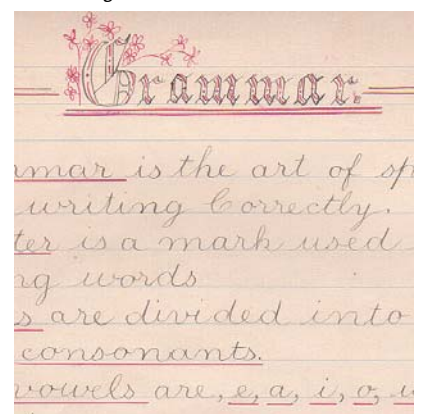 Grammar.
mmar is the art of sp
writing Correctly.
ter is a mark used
ng words
s are divided into
consonants.
vowels are, e, a, i, o, u